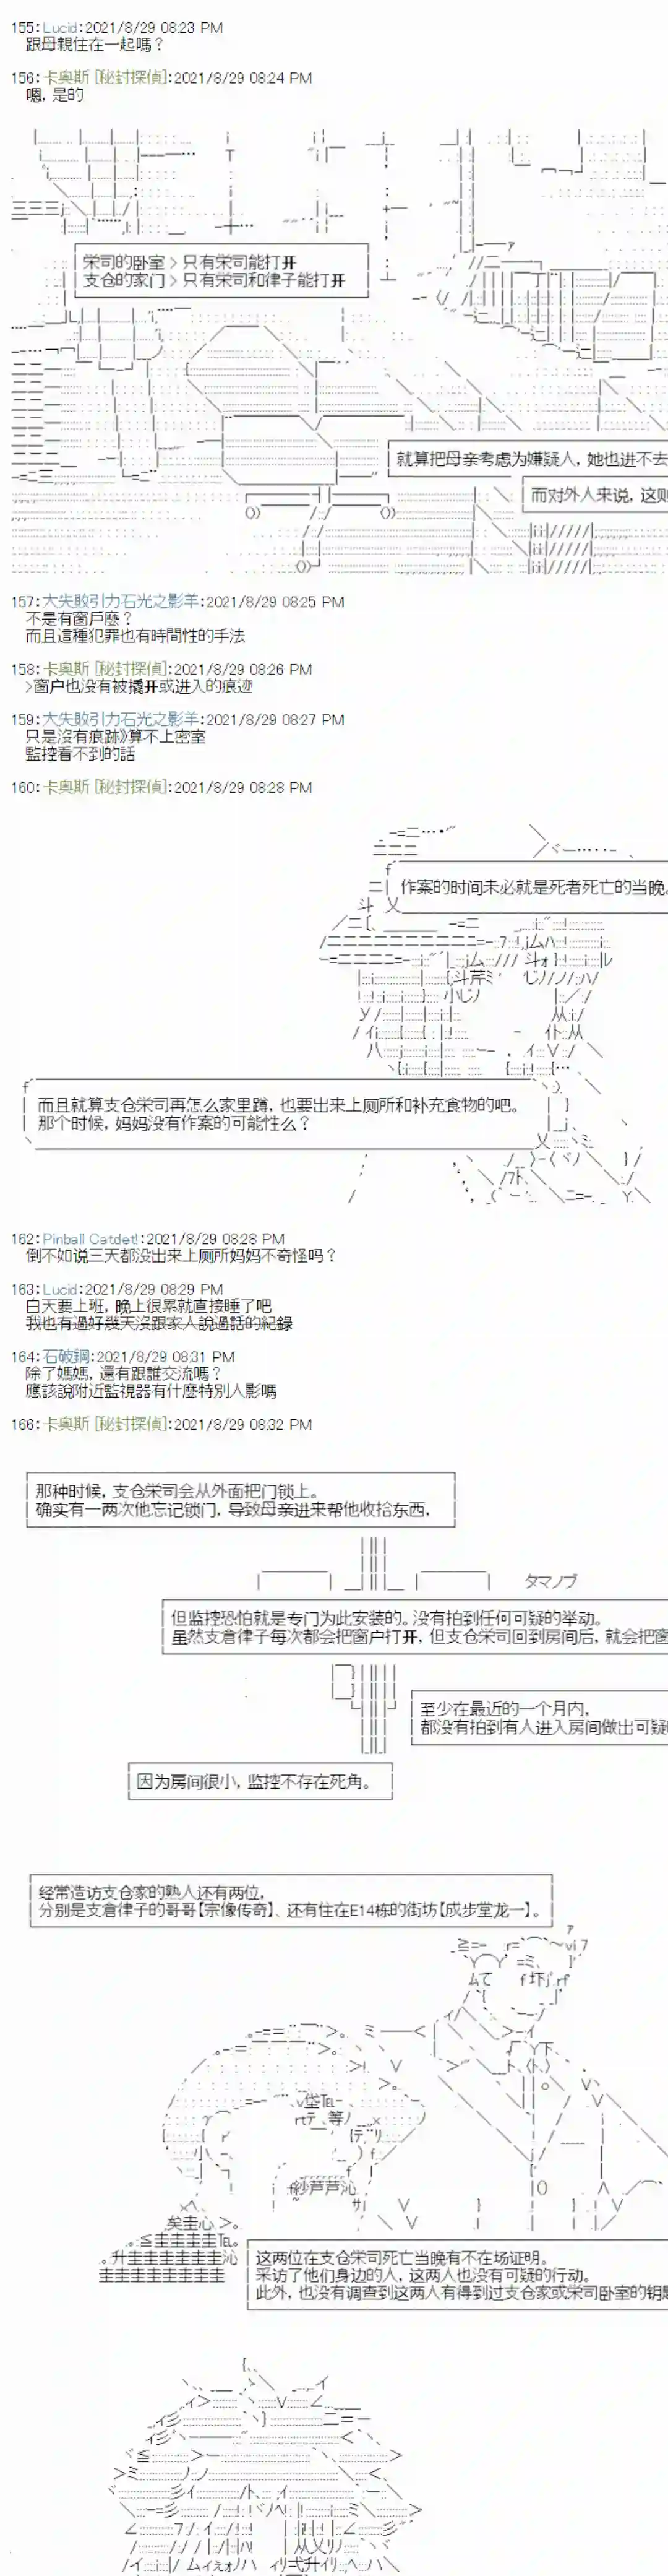 155：Lucid：2021/8/29 08:23 PM
跟母親住在一起嗎？
156：卡奧斯 [秘封探偵]：2021/8/29 08:24 PM
嗯，是的
荣司的卧室 > 只有荣司能打开
支仓的家门 > 只有荣司和律子能打开
就算把母亲考虑为嫌疑人，她也进不去
而对外人来说，这则
157：大失敗引力石光之影羊：2021/8/29 08:25 PM
不是有窗戶麼？
而且這種犯罪也有時間性的手法
158：卡奧斯 [秘封探偵]：2021/8/29 08:26 PM
>窗户也没有被撬开或进入的痕迹
159：大失敗引力石光之影羊：2021/8/29 08:27 PM
只是沒有痕跡》算不上密室
監控看不到的話
160：卡奧斯 [秘封探偵]：2021/8/29 08:28 PM
作案的时间未必就是死者死亡的当晚。
而且就算支仓荣司再怎么家里蹲，也要出来上厕所和补充食物的吧。
那个时候，妈妈没有作案的可能性么？
162：Pinball Catdet!：2021/8/29 08:28 PM
倒不如说三天都没出来上厕所妈妈不奇怪吗？
163：Lucid：2021/8/29 08:29 PM
白天要上班，晚上很累就直接睡了吧
我也有過好幾天沒跟家人說過話的紀錄
164：石破鋼：2021/8/29 08:31 PM
除了媽媽，還有跟誰交流嗎？
應該說附近監視器有什麼特別人影嗎
166：卡奧斯 [秘封探偵]：2021/8/29 08:32 PM
那种时候，支仓荣司会从外面把门锁上。
确实有一两次他忘记锁门，导致母亲进来帮他收拾东西，
タマノブ
但监控恐怕就是专门为此安装的。没有拍到任何可疑的举动。
虽然支倉律子每次都会把窗户打开，但支仓荣司回到房间后，就会把窗
至少在最近的一个月内，
都没有拍到有人进入房间做出可疑
因为房间很小，监控不存在死角。
经常造访支仓家的熟人还有两位，
分别是支倉律子的哥哥【宗像传奇】、还有住在E14栋的街坊【成步堂龙一】。
这两位在支仓荣司死亡当晚有不在场证明。
采访了他们身边的人，这两人也没有可疑的行动。
此外，也没有调查到这两人有得到过支仓家或荣司卧室的钥匙